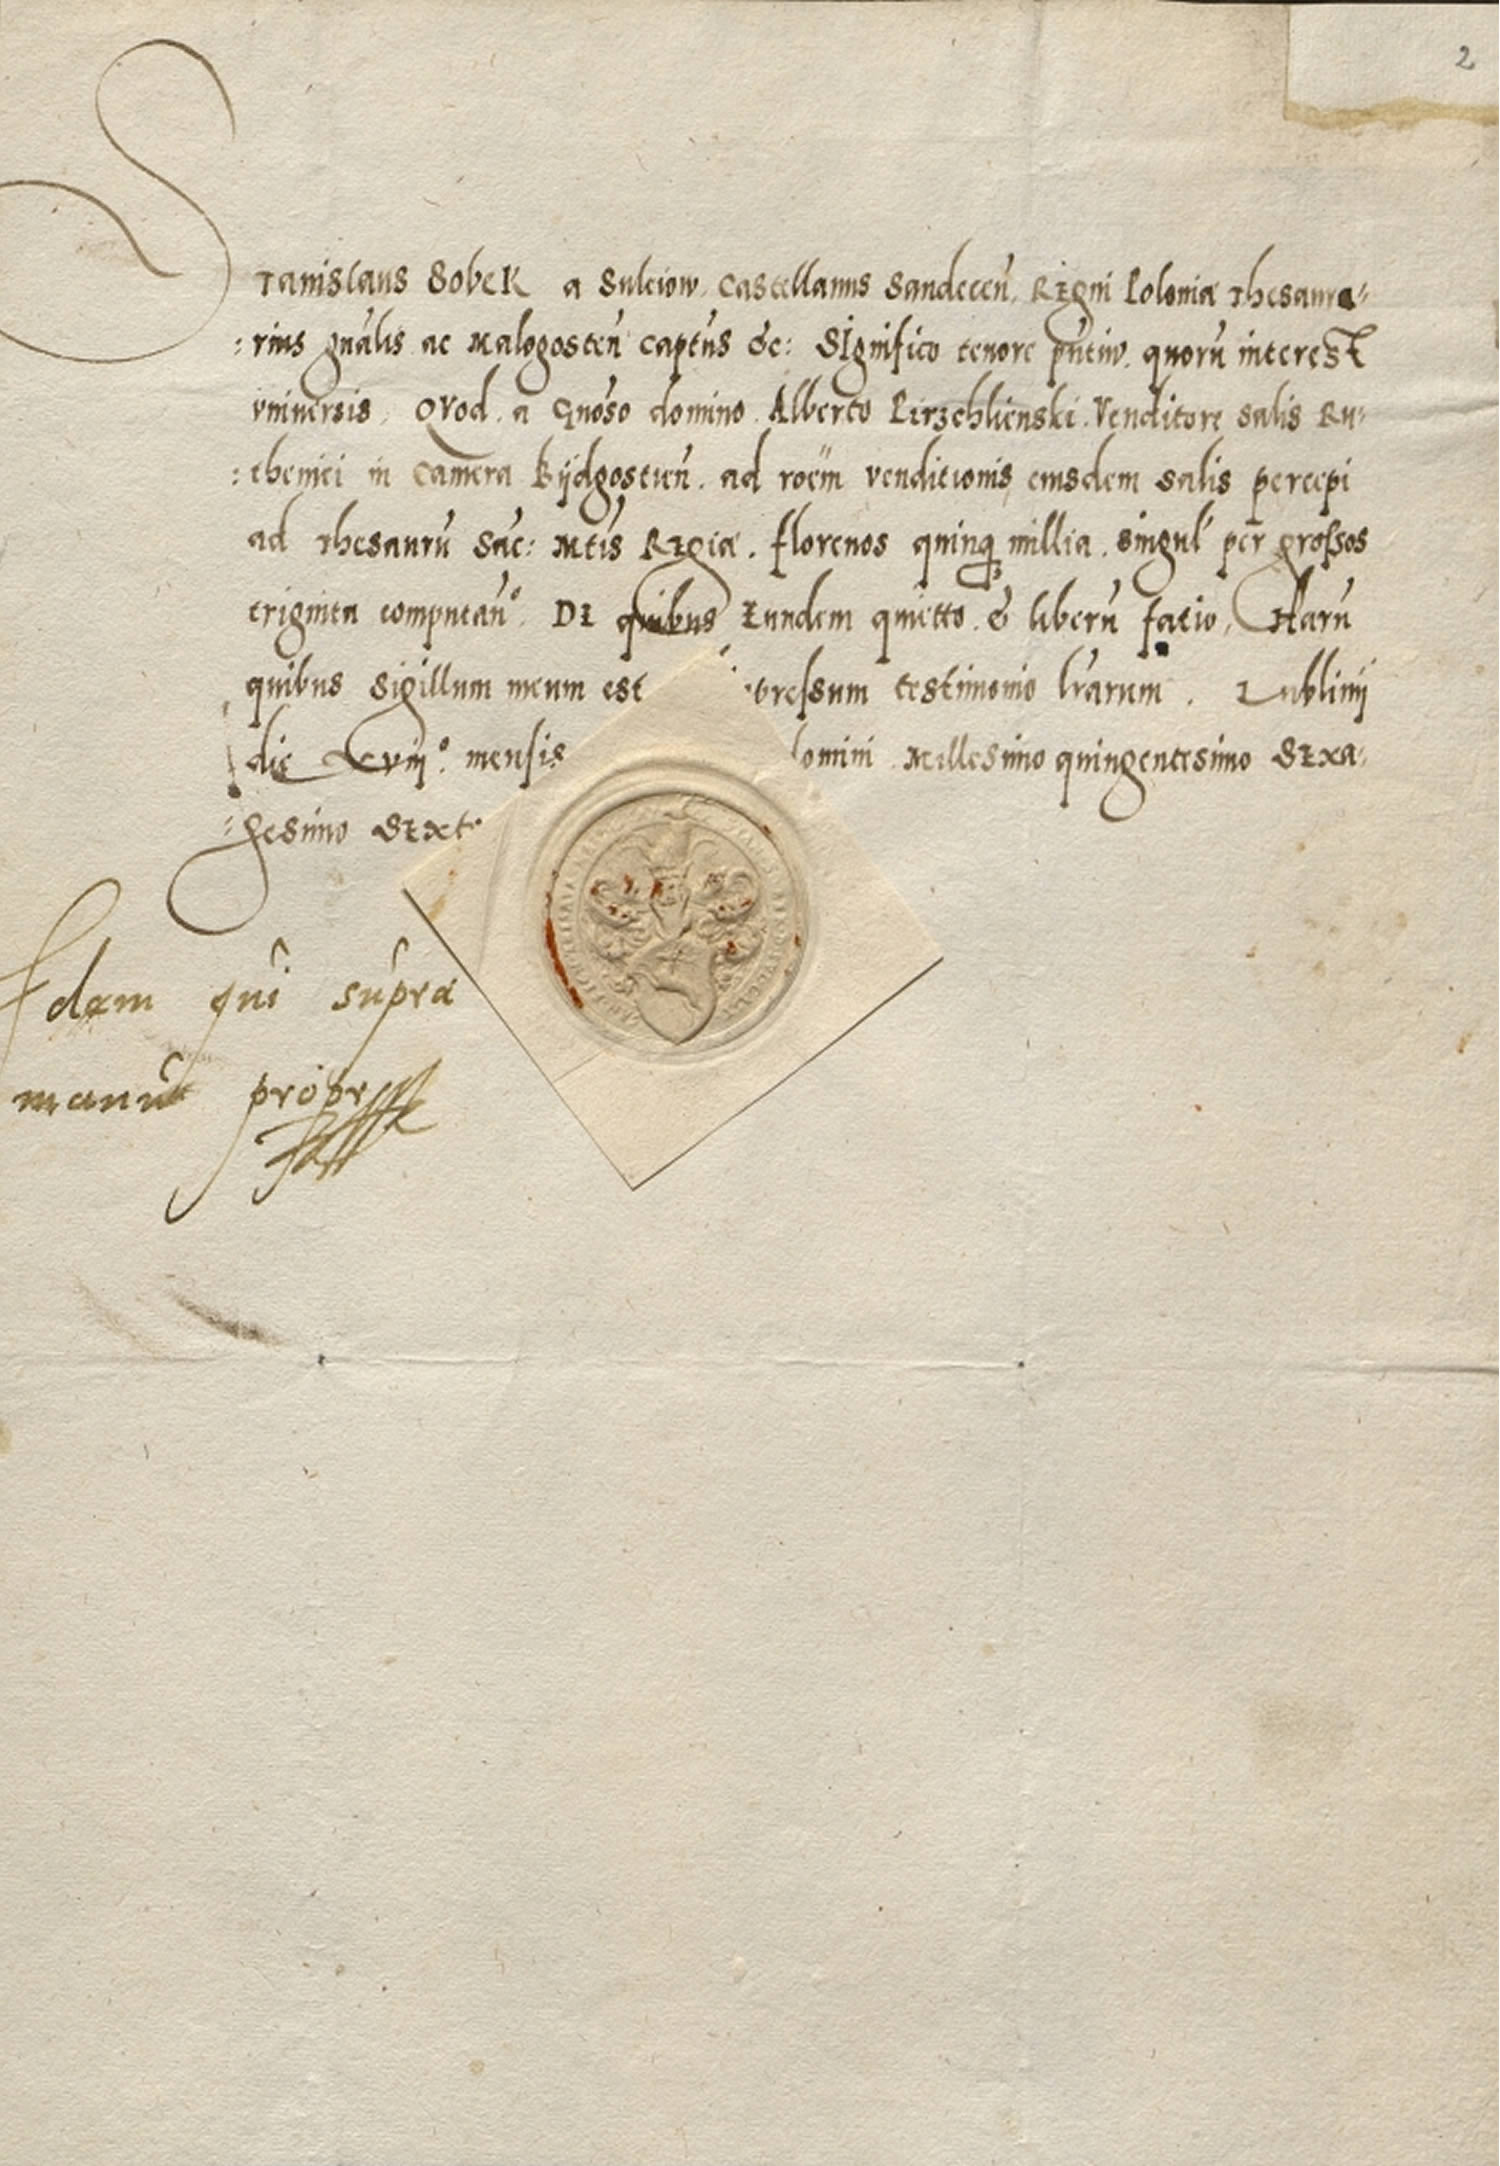 2
Stanislaus Sobek a Suleiow, Castellanus Sandecen̄, Regni Poloniæ Thesaura=
:rius gn̄alis ac Malogosten̄ Capt̄n̄s &c: SIgnifico tenore pn̄tiū. quorū interest
vniuersis, QVod a Gn̄oso domino Alberto Pirzchlienski Venditore salis Ru=
:thenici in Camera Bijdgostien̄. ad roēm venditionis eiusdem salis percepi
ad Thesaurū Sac: Mtis Regiæ. florenos quinq; millia. singul' per grossos
triginta computan̄º. DE quibus Eundem quietto & liberū facio, Harū
quibus sigillum meum est pressum testimonio lr̄arum. Lublinij
die Xviijº. mensis omini Millesimo quingentesimo SExa=
:gesimo SExto
Idem qui supra
manu propr